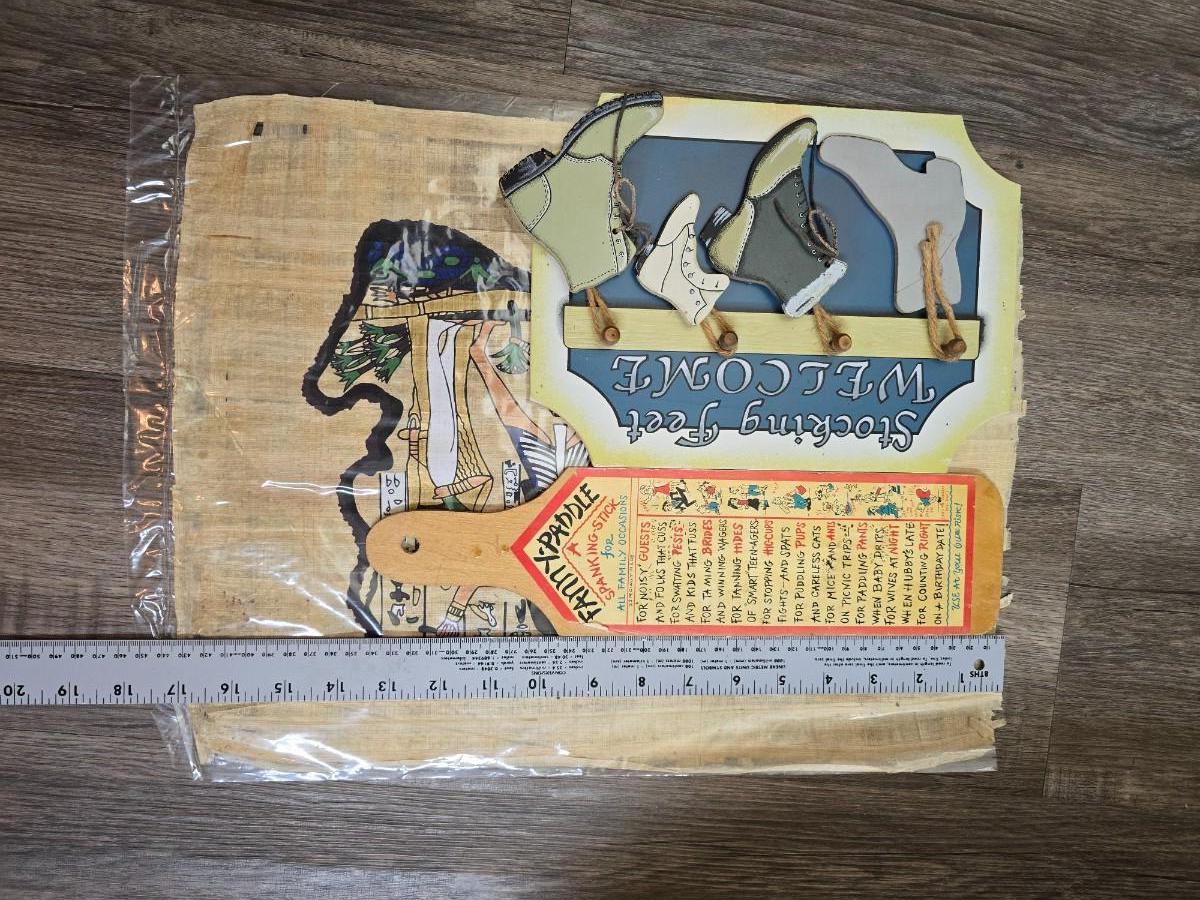 Stocking Feet
WELCOME
FANNY-PADDLE
A
SPANKING-STICK
for
ALL FAMILY OCCASIONS
FOR NOISY GUESTS
AND FOLKS THAT CUSS
FOR SWATTING PESTS
AND KIDS THAT FUSS
FOR TAMING BRIDES
AND WINNING WAGERS
FOR TANNING HIDES
OF SMART TEEN-AGERS
FOR STOPPING HIC-CUPS
FIGHTS-AND SPATS
FOR PUDDLING PUPS
AND CARELESS CATS
FOR MICE AND ANTS
ON PICNIC TRIPS
FOR PADDLING PANTS
WHEN BABY DRIPS
FOR WIVES AT NIGHT
WHEN HUBBY'S LATE
FOR COUNTING RIGHT
ON A BIRTHDAY DATE!
USE AT YOUR OWN RISK!
8THS
1 2 3 4 5 6 7 8 9 10 11 12 13 14 15 16 17 18 19 20
LINEAR METRIC UNITS AND SYMBOLS
CONVERSIONS